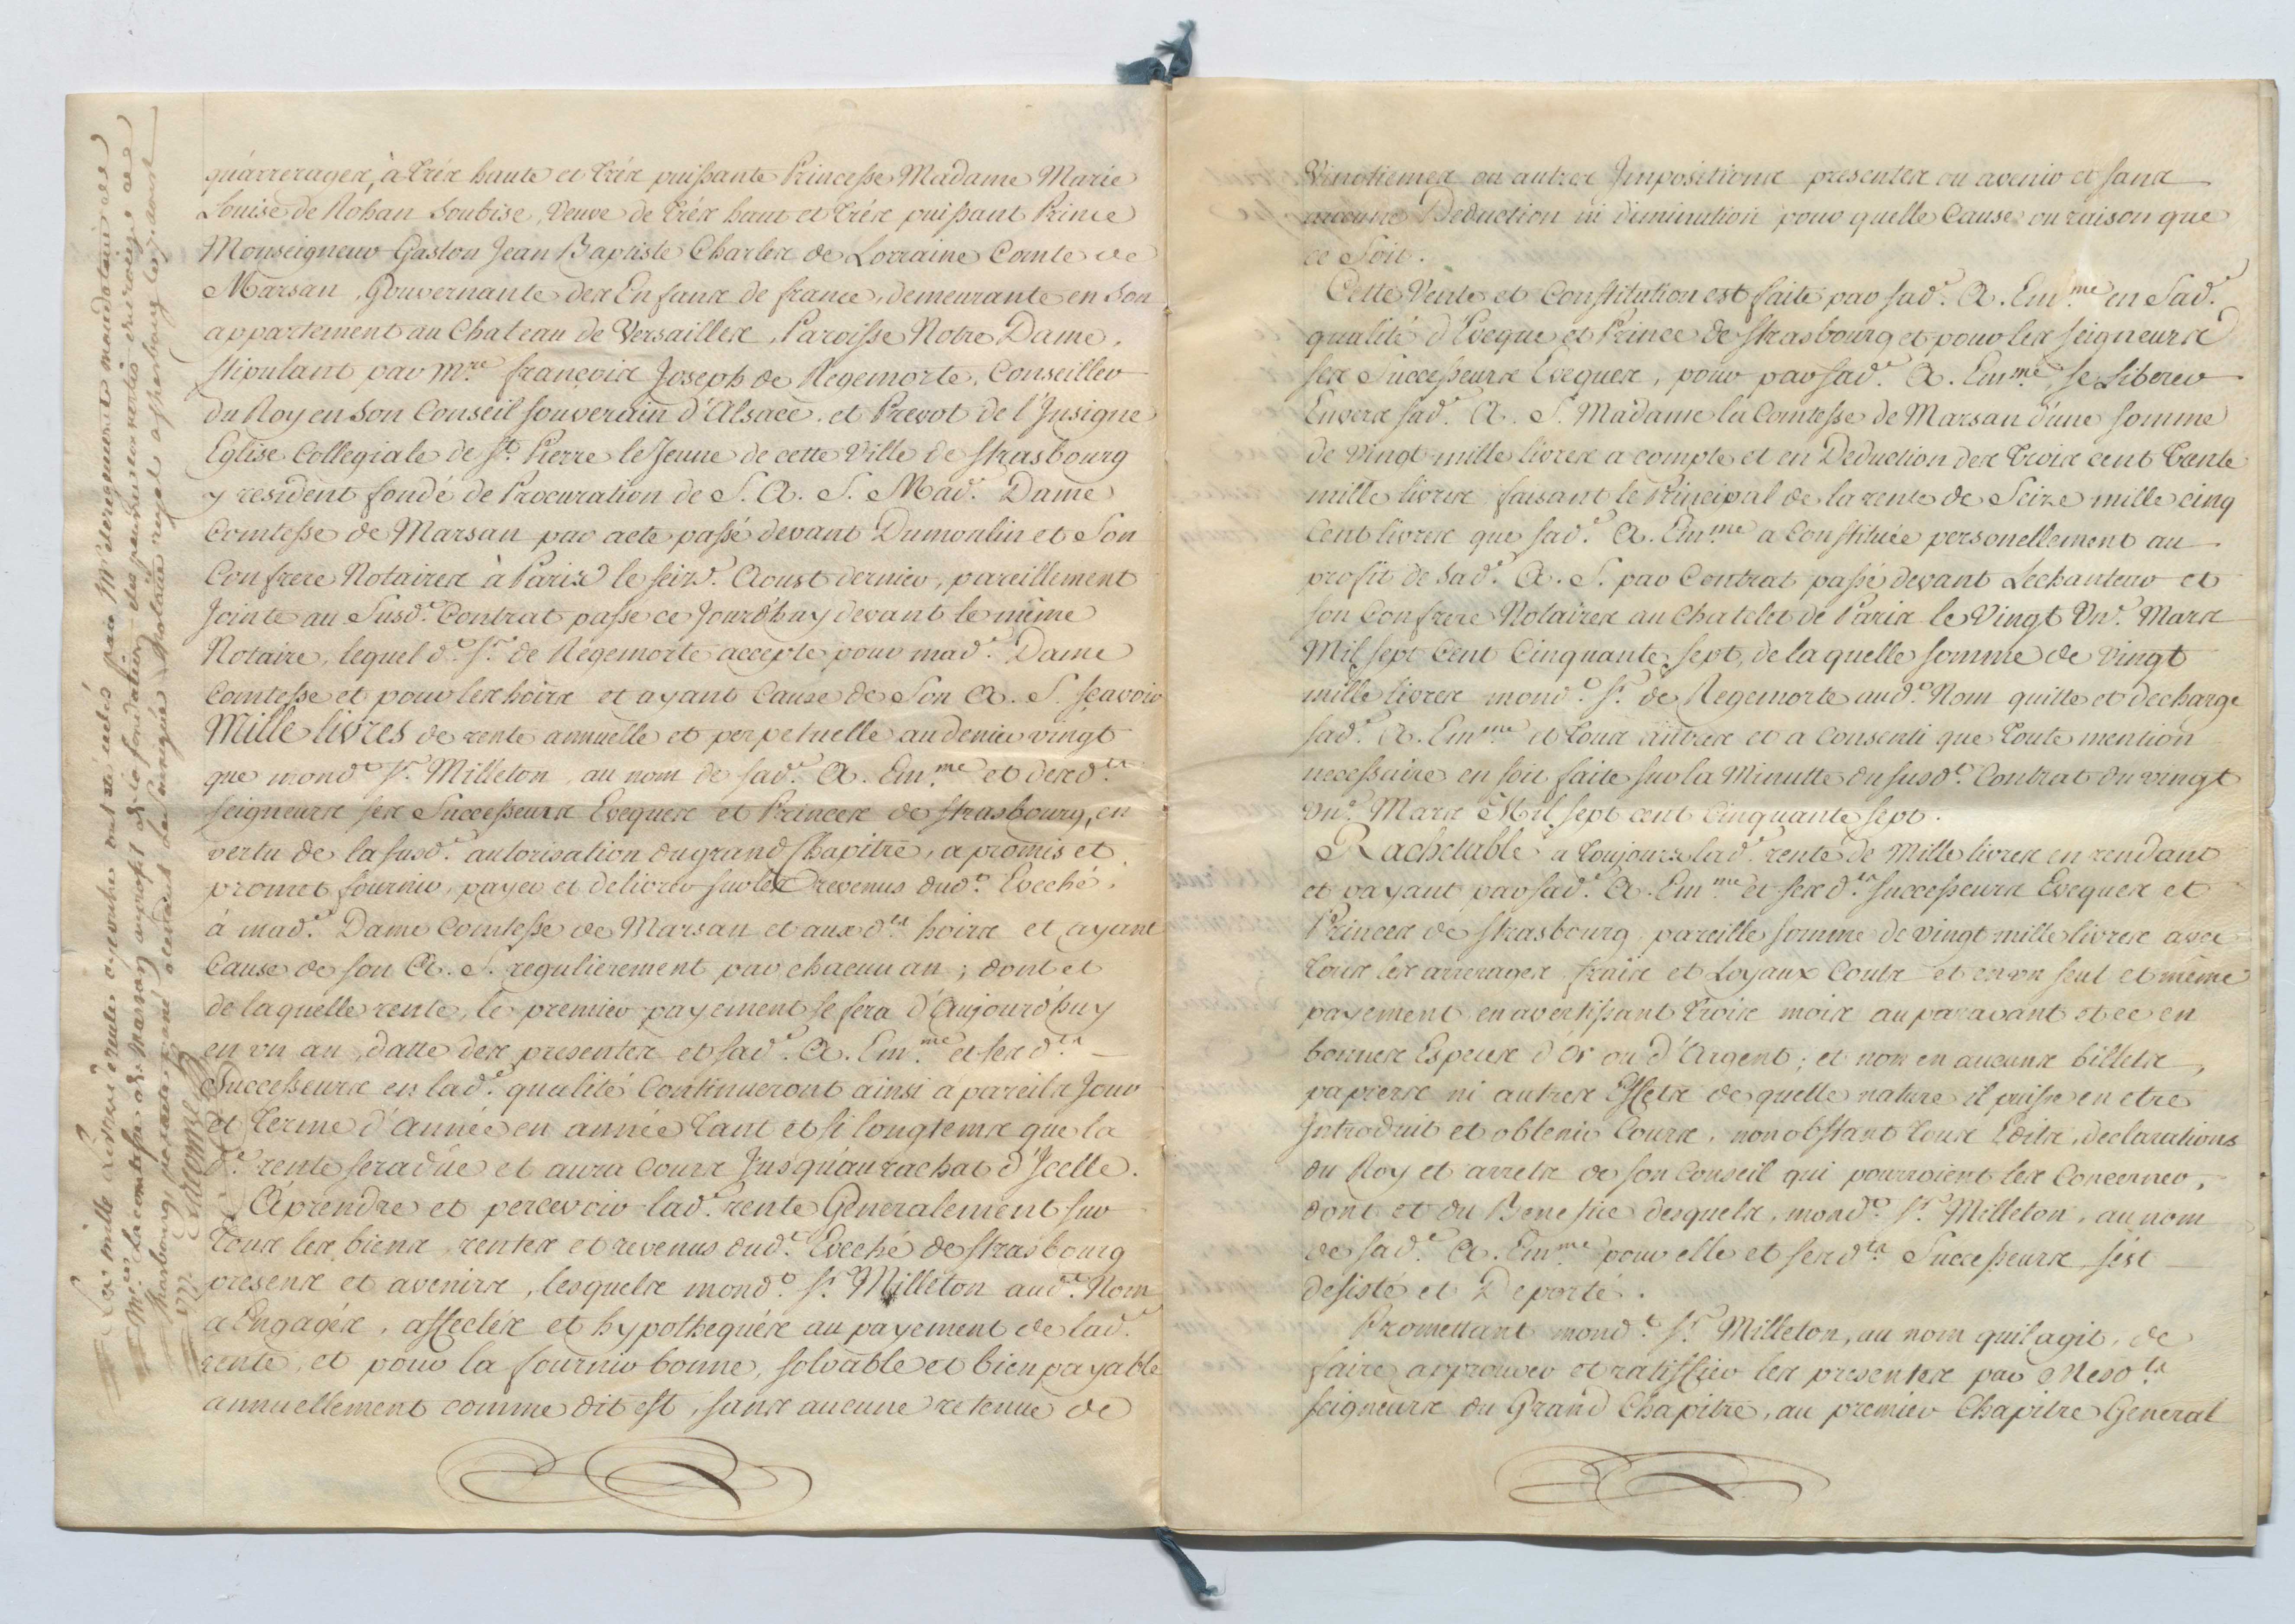 qu'arrerages, à très haute et très puissante Princesse Madame Marie
Louise de Rohan Soubise, Veuve de très haut et très puissant Prince
Monseigneur Gaston Jean Baptiste Charles de Lorraine Comte de
Marsan, Gouvernante des Enfans de france, demeurante en Son
appartement au Chateau de Versailles, Paroisse Notre Dame,
stipulant par Mre. françois Joseph de Regemorte, Conseiller
du Roy en Son Conseil souverain d'Alsace, et Prevot de l'Insigne
Eglise Collegiale de St. Pierre le Jeune de cette Ville de Strasbourg
y resident fondé de Procuration de S. A. S. Made. Dame
Comtesse de Marsan par acte passé devant Dumoulin et Son
Confrere Notaires à Paris le seize. Aoust dernier, pareillement
Jointe au Susd. Contrat passé ce Jourd'huy devant le même
Notaire, lequel d. Sr. de Regemorte accepte pour made. Dame
Comtesse et pour les hoirs et ayant Cause de Son A. S. sçavoir
Mille livres de rente annuelle et perpetuelle au denier vingt
que mond. Sr. Milleton, au nom de sad. A. Emme. et desdts.
seigneurs ses Successeurs Eveques et Princes de Strasbourg, en
vertu de la susd. autorisation du grand Chapitre, a promis et
promet fournir, payer et delivrer sur les revenus dud. Eveché,
à mad. Dame Comtesse de Marsan et auxdts. hoirs et ayant
Cause de son A. S. regulierement par chacun an; dont et
de laquelle rente, le premier payement se fera d'Aujourd'huy
en un an, datte des presentes et sad. A. Emme. et sesdts.
Successeurs en lad. qualité Continueront ainsi a pareils Jour
et terme d'année en année tant et si longtems que la
de. rente sera düe et aura Cours Jusqu'au rachat d'Jcelle.
A prendre et percevoir lad. rente Generalement sur
tous les biens, rentes et revenus dud. Eveché de Strasbourg
presens et avenirs, lesquels mond. Sr. Milleton aud. Nom
a Engagés, affectés et hypothequés au payement de lad.
rente, et pour la fournir bonne, solvable et bien payable
annuellement comme dit est, sans aucune retenue de
Vingtiemes ou autres Impositions presentes ou avenir et sans
aucune Deduction ni diminution pour quelle Cause ou raison que
ce Soit.
Cette Vente et Constitution est faite par sad. A. Emme. en Sad.
qualité d'Eveque et Prince de Strasbourg et pour les seigneurs
ses Successeurs Eveques, pour par sad. A. Emme. se Liberer
Envers sad. A. S. Madame la Comtesse de Marsan d'une somme
de Vingt mille livres a compte et en Deduction des trois cent trente
mille livres faisant le Principal de la rente de Seize mille cinq
Cent livres que sad. A. Emme. a Constituée personellement au
profit de Sad. A. S. par Contrat passé devant Lechanteur et
son Confrere Notaires au Chatelet de Paris le Vingt Un. Mars
Mil sept Cent Cinquante sept, de laquelle somme de Vingt
mille livres mond. Sr. de Regemorte aud. Nom quitte et decharge
sad. A. Emme. et tous autres et a Consenti que toute mention
necessaire en soit faite sur la Minutte du susd. Contrat du vingt
un. Mars Mil sept cent Cinquante sept.
Rachetable a toujours lad. rente de Mille livres en rendant
et payant par sad. A. Emme. et sesdts. successeurs Eveques et
Princes de Strasbourg, pareille somme de vingt mille livres avec
tous les arrerages frais et Loyaux Couts et en un seul et même
payement en avertissant trois mois auparavant et ce en
bonnes Especes d'Or ou d'Argent; et non en aucuns billets,
papiers ni autres Effets de quelle nature il puisse en etre
Introduit et obtenir Cours, nonobstant tous Edits, declarations
du Roy et arrets de son Conseil qui pourroient les Concerner,
dont et du Benefice desquels, mond. Sr. Milleton, au nom
de sad. A. Emme. pour elle et sesdts. Successeurs, s'est
desisté et Deporté.
Promettant mond. Sr. Milleton, au nom qu'il agit, de
faire approuver et ratiffier les presentes par Mesdts.
seigneurs du Grand Chapitre, au premier Chapitre General